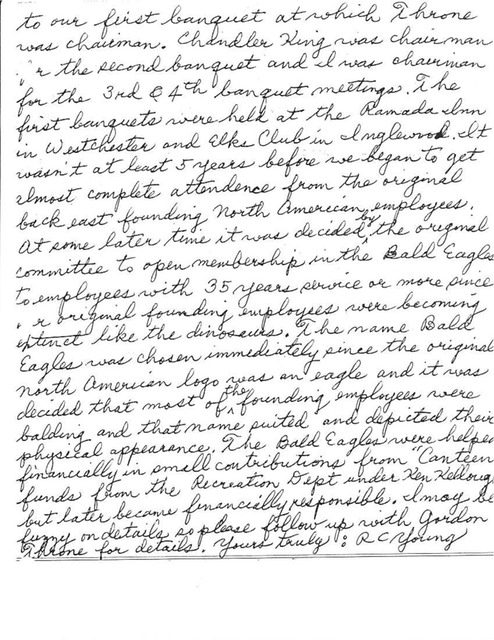 to our first banquet at which Throne
was chairman. Chandler King was chairman
r the second banquet and I was chairman
for the 3rd & 4th banquet meetings. The
first banquets were held at the Ramada Inn
in Westchester and Elks Club in Inglewood. It
wasn't at least 5 years before we began to get
almost complete attendence from the original
back east founding North American employees.
At some later time it was decided by the original
committee to open membership in the Bald Eagles
to employees with 35 years service or more since
r original founding employees were becoming
extinct like the dinosaurs. The name Bald
Eagles was chosen immediately since the original
North American logo was an eagle and it was
decided that most of the founding employees were
balding and that name suited and depicted their
physical appearance. The Bald Eagles were helped
financially in small contributions from "Canteen
funds from the Recreation Dept under Ken Kellough
but later became financially responsible. I may be
fuzzy on details so please follow up with Gordon
Throne for details. Yours truly: R C Young